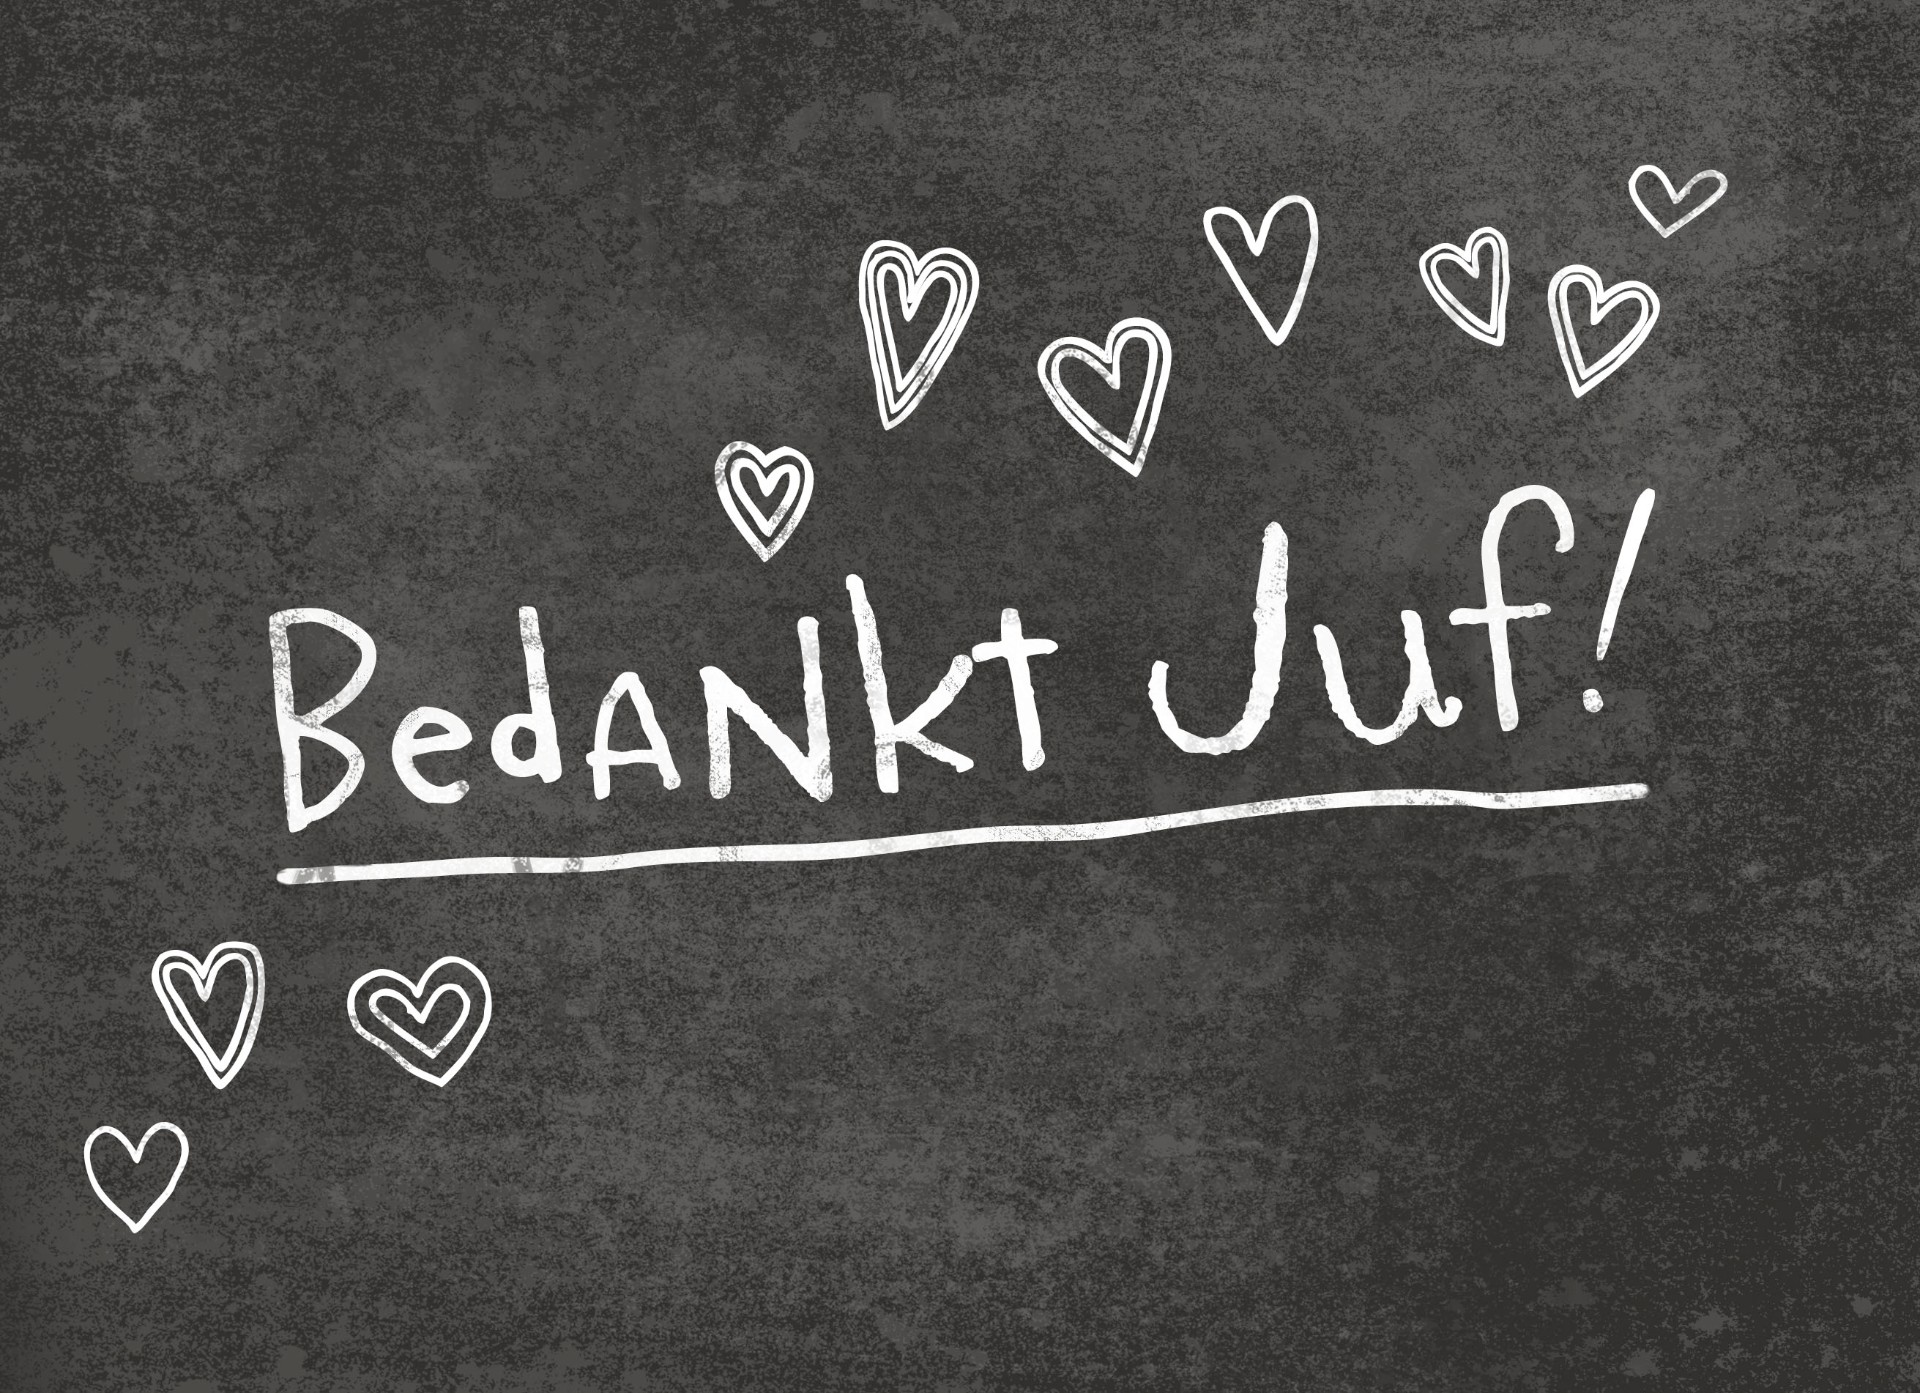 Bedankt Juf!